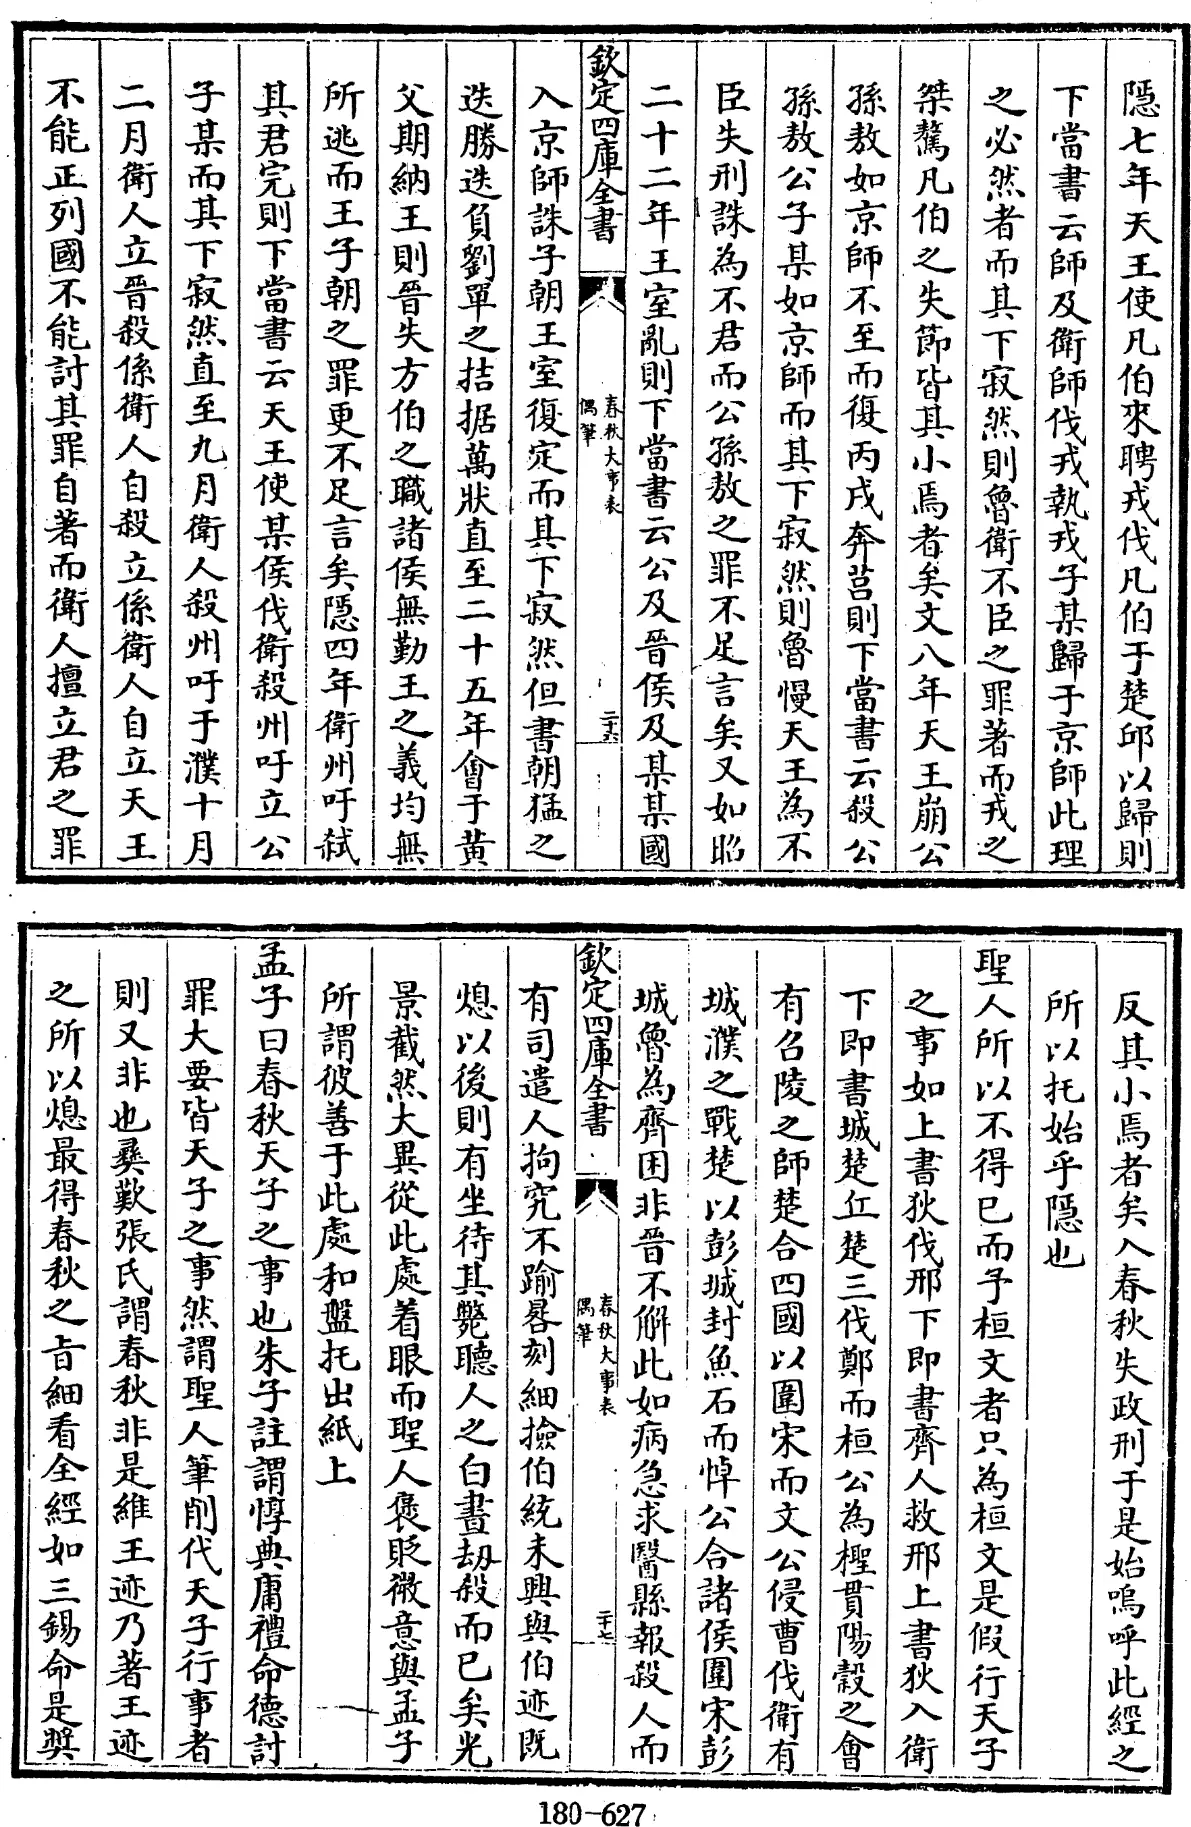 隱七年天王使凡伯來聘戎伐凡伯于楚邱以歸則
下當書云師及衛師伐戎執戎子某歸于京師此理
之必然者而其下寂然則魯衛不臣之罪著而戎之
桀驁凡伯之失節皆其小焉者矣文八年天王崩公
孫敖如京師不至而復丙戌奔莒則下當書云殺公
孫敖公子某如京師而其下寂然則魯慢天王為不
臣失刑誅為不君而公孫敖之罪不足言矣又如昭
二十二年王室亂則下當書云公及晉侯及某某國
欽定四庫全書
春秋大事表
偶筆
二十六
入京師誅子朝王室復定而其下寂然但書朝猛之
迭勝迭負劉單之拮据萬狀直至二十五年會于黃
父期納王則晉失方伯之職諸侯無勤王之義均無
所逃而王子朝之罪更不足言矣隱四年衛州吁弑
其君完則下當書云天王使某侯伐衛殺州吁立公
子某而其下寂然直至九月衛人殺州吁于濮十月
二月衛人立晉殺係衛人自殺立係衛人自立天王
不能正列國不能討其罪自著而衛人擅立君之罪
反其小焉者矣入春秋失政刑于是始嗚呼此經之
所以托始乎隱也
聖人所以不得已而予桓文者只為桓文是假行天子
之事如上書狄伐邢下即書齊人救邢上書狄入衛
下即書城楚丘楚三伐鄭而桓公為檉貫陽穀之會
有召陵之師楚合四國以圍宋而文公侵曹伐衛有
城濮之戰楚以彭城封魚石而悼公合諸侯圍宋彭
城魯為齊困非晉不解此如病急求醫縣報殺人而
欽定四庫全書
春秋大事表
偶筆
二十七
有司遣人拘究不踰晷刻細撿伯統未興與伯迹既
熄以後則有坐待其斃聽人之白晝劫殺而已矣光
景截然大異從此處着眼而聖人褒貶微意與孟子
所謂彼善于此處和盤托出紙上
孟子曰春秋天子之事也朱子註謂惇典庸禮命德討
罪大要皆天子之事然謂聖人筆削代天子行事者
則又非也彛歎張氏謂春秋非是維王迹乃著王迹
之所以熄最得春秋之旨細看全經如三錫命是奬
180-627